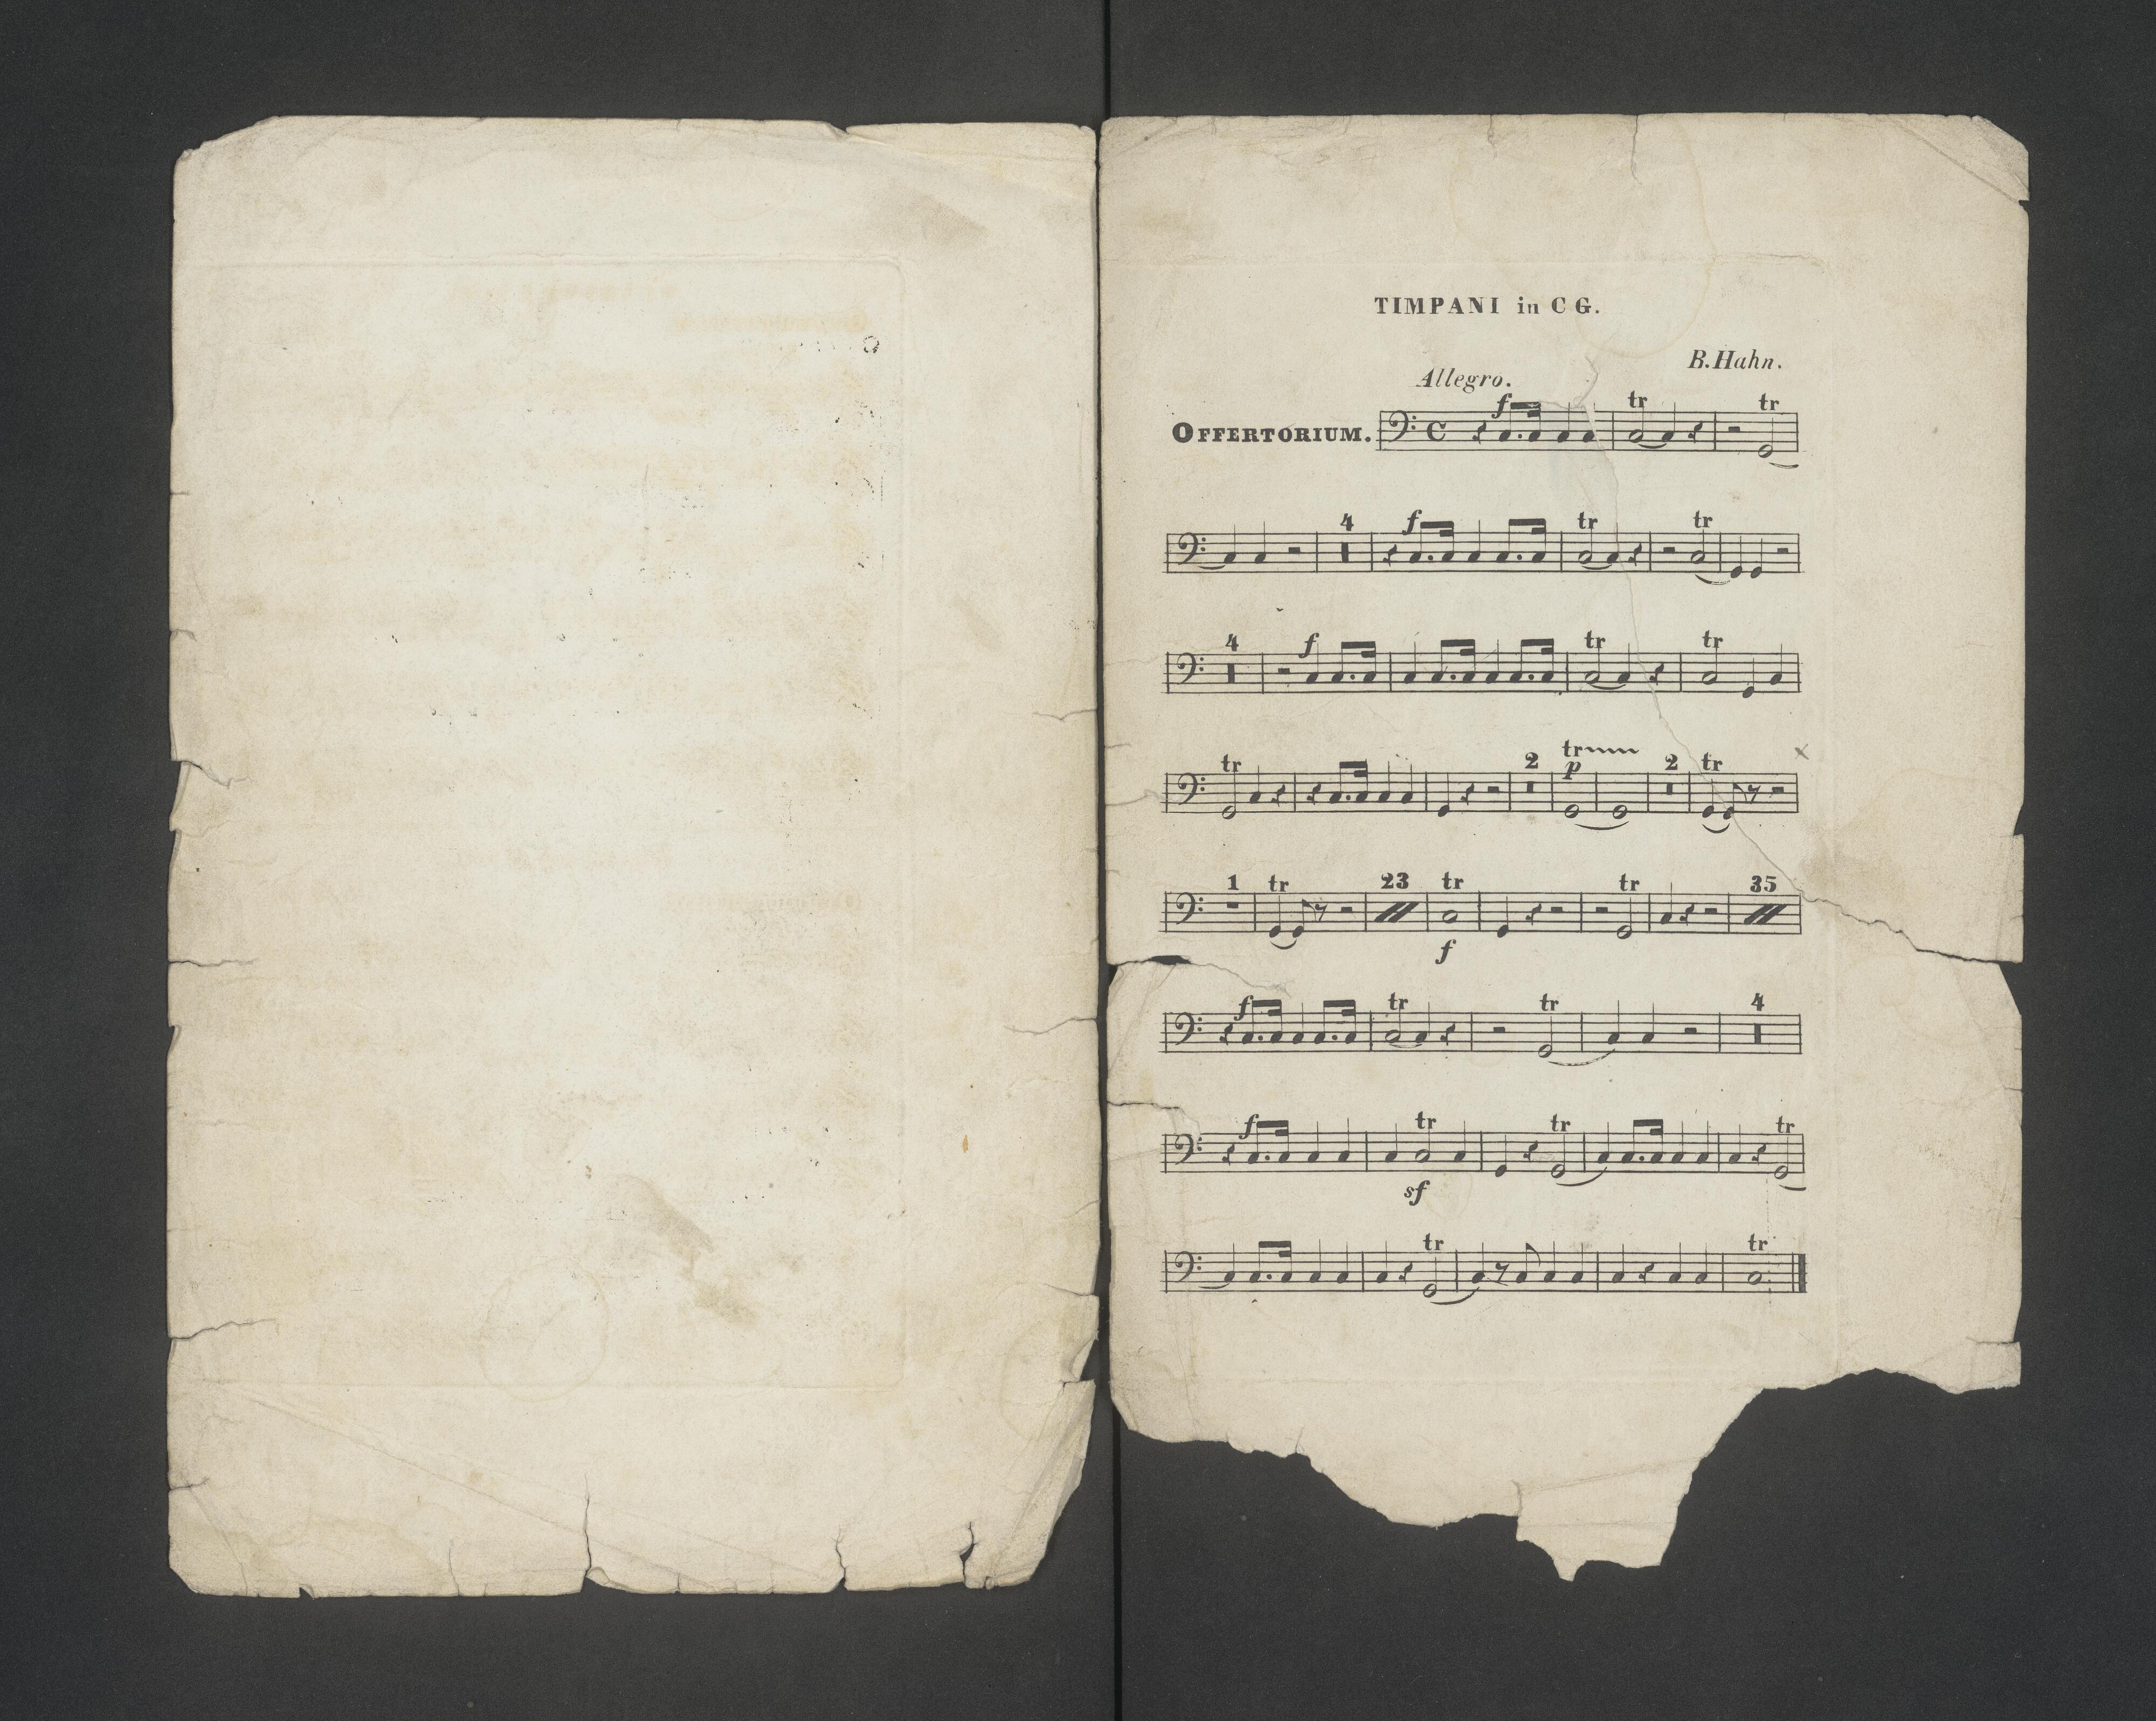 TIMPANI in C G.
B. Hahn.
Allegro.
OFFERTORIUM.
f tr tr
4 f tr tr
4 f tr tr
tr 2 tr p 2 tr
1 tr 23 tr f tr 35
f tr tr 4
f tr sf tr tr
tr tr